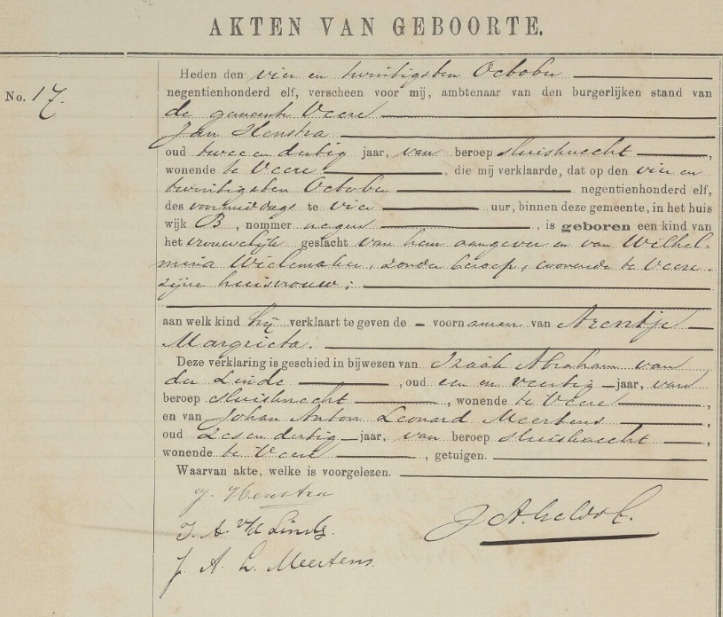 AKTEN VAN GEBOORTE.
No. 17.
Heden den vier en twintigsten October
negentienhonderd elf, verscheen voor mij, ambtenaar van den burgerlijken stand van
de gemeente Veere
Jan Henstra
oud twee en dertig jaar, van beroep sluisknecht,
wonende te Veere, die mij verklaarde, dat op den vier en
twintigsten October negentienhonderd elf,
des voormiddags te vier uur, binnen deze gemeente, in het huis
wijk B, nommer negen, is geboren een kind van
het vrouwelijk geslacht van hem aangever en van Wilhel-
mina Wielemaker, zonder beroep, wonende te Veere
zijne huisvrouw;
aan welk kind hij verklaart te geven de voornamen van Arentje
Margrieta.
Deze verklaring is geschied in bijwezen van Izaäk Abraham van
der Linde, oud een en veertig jaar, van
beroep sluisknecht, wonende te Veere,
en van Johan Anton Leonard Meertens,
oud zes en dertig jaar, van beroep sluisknecht,
wonende te Veere, getuigen.
Waarvan akte, welke is voorgelezen.
J. Henstra
J. A. vd Linde.
J. A. L. Meertens